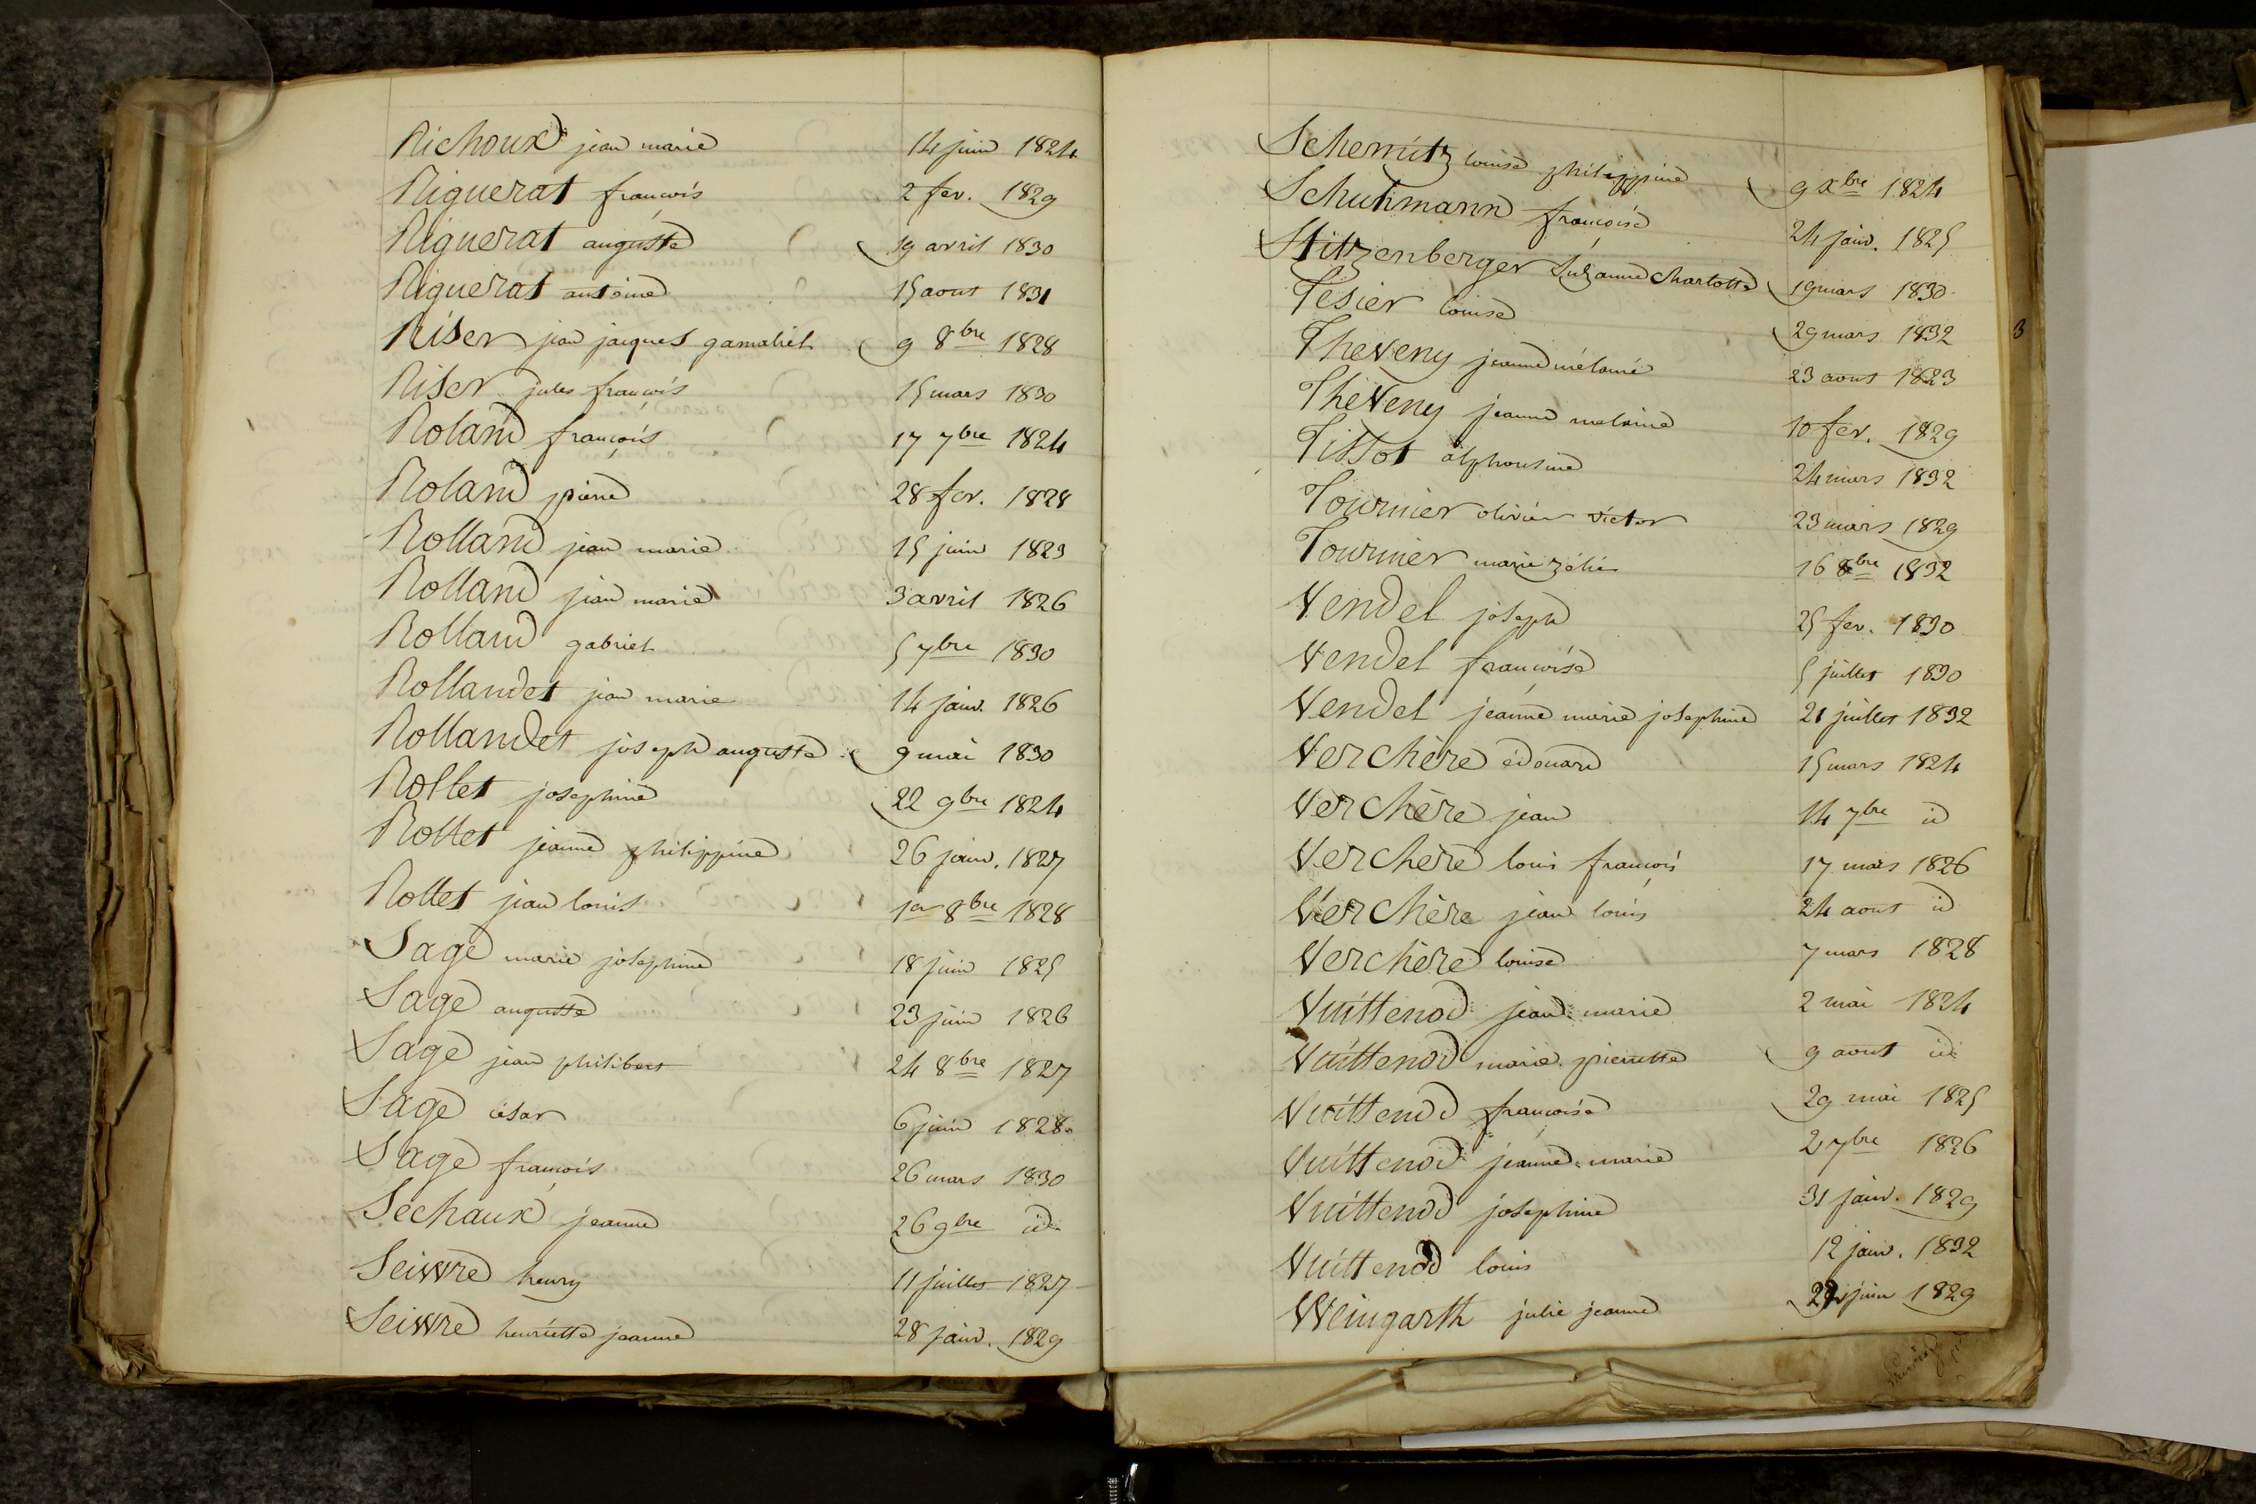 Richoux jean marie 14 juin 1824
Riguerat francois 2 fev. 1829
Riguerat auguste 19 avril 1830
Riguerat antoine 15 aout 1831
Riser jean jacques gamaliel 9 8bre 1828
Riser jules françois 15 mars 1830
Roland françois 17 7bre 1824
Roland pierre 28 fev. 1828
Rolland jean marie 15 juin 1823
Rolland jean marie 3 avril 1826
Rolland gabriel 5 7bre 1830
Rollandet jean marie 14 janv. 1826
Rollandet joseph auguste 9 mai 1830
Rollet josephine 22 9bre 1824
Rollet jeanne philippine 26 janv. 1827
Rollet jean louis 1er 8bre 1828
Sage marie josephine 18 juin 1825
Sage auguste 23 juin 1826
Sage jean philibert 24 8bre 1827
Sage césar 6 juin 1828
Sage françois 26 mars 1830
Sechaux jeanne 26 9bre id.
Seivvre henry 11 juillet 1827
Seivvre henriette jeanne 28 janv. 1829
Schemitz louise philippine 9 Xbre 1824
Schuhmann françoise 24 janv. 1825
Stitzenberger Suzanne Charlotte 19 mars 1830
Tesier louise 29 mars 1832
3
Theveny jeanne mélanie 23 aout 1823
Theveny jeanne melanie 10 fev. 1829
Tissot alphonsine 24 mars 1832
Tournier olivier victor 23 mars 1829
Tournier marie zélie 16 8bre 1832
Vendel joseph 25 fev. 1830
Vendel françoise 5 juillet 1830
Vendel jeanne marie josephine 21 juillet 1832
Verchère édouard 15 mars 1824
Verchère jean 14 7bre id
Verchère louis françois 17 mars 1826
Verchère jean louis 24 aout id
Verchère louise 7 mars 1828
Vuittenod jean marie 2 mai 1824
Vuittenod marie pierrette 9 aout id
Vuittenod françoise 29 mai 1825
Vuittenod jeanne marie 2 7bre 1826
Vuittenod josephine 31 janv. 1829
Vuittenod louis 12 janv. 1832
Weingarth julie jeanne juin 1829